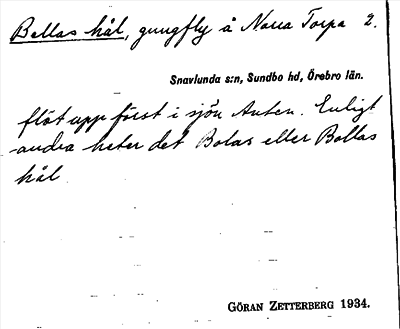 Bollas hål, gungfly å Norra Torpa 2.
Snavlunda s:n, Sundbo hd, Örebro län.
flöt upp först i sjön Anten. Enligt
andra heter det Bolas eller Bollas
hål
GÖRAN ZETTERBERG 1934.